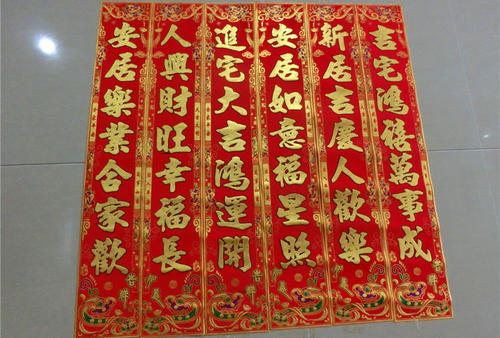 吉宅鴻禧萬事成
新居吉慶人歡樂
安居如意福星照
進宅大吉鴻運開
人興財旺幸福長
安居樂業合家歡